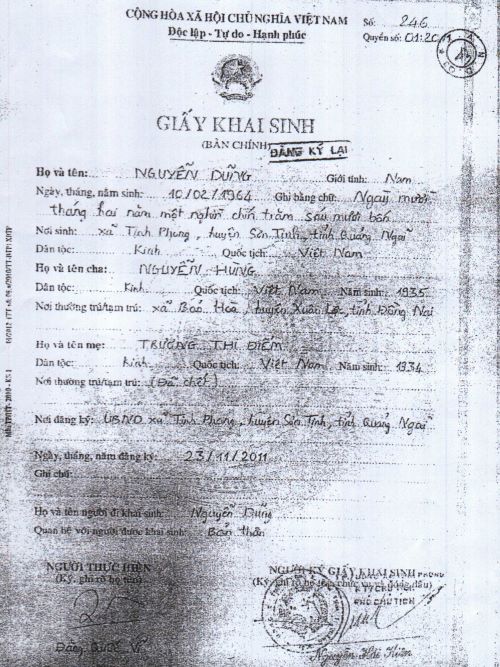 CỘNG HÒA XÃ HỘI CHỦ NGHĨA VIỆT NAM
Độc lập - Tự do - Hạnh phúc
Số: 246
Quyển số: 01:20
GIẤY KHAI SINH
(BẢN CHÍNH)
ĐĂNG KÝ LẠI
Họ và tên: NGUYỄN DŨNG Giới tính: Nam
Ngày, tháng, năm sinh: 10/02/1964 Ghi bằng chữ: Ngày mười
tháng hai năm một nghìn chín trăm sáu mươi bốn
Nơi sinh: xã Tịnh Phong, huyện Sơn Tịnh, tỉnh Quảng Ngãi
Dân tộc: Kinh Quốc tịch: Việt Nam
Họ và tên cha: NGUYỄN HƯNG
Dân tộc: Kinh Quốc tịch: Việt Nam Năm sinh: 1935
Nơi thường trú/tạm trú: xã Bảo Hòa, huyện Xuân Lộc, tỉnh Đồng Nai
Họ và tên mẹ: TRƯƠNG THỊ ĐIỂM
Dân tộc: Kinh Quốc tịch: Việt Nam Năm sinh: 1934
Nơi thường trú/tạm trú: (Đã chết)
Nơi đăng ký: UBND xã Tịnh Phong, huyện Sơn Tịnh, tỉnh Quảng Ngãi
Ngày, tháng, năm đăng ký: 23/11/2011
Ghi chú:
Họ và tên người đi khai sinh: Nguyễn Dũng
Quan hệ với người được khai sinh: Bản thân
NGƯỜI THỰC HIỆN
(Ký, ghi rõ họ tên)
NGƯỜI KÝ GIẤY KHAI SINH
(Ký, ghi rõ họ tên, chức vụ và đóng dấu)
KT CHỦ TỊCH
PHÓ CHỦ TỊCH